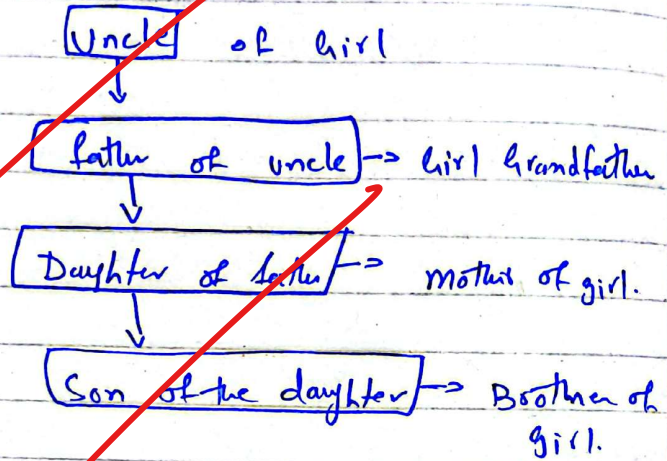 Uncle of Girl
father of uncle -> Girl Grandfather
Daughter of father -> Mother of girl.
Son of the daughter -> Boothner of
girl.